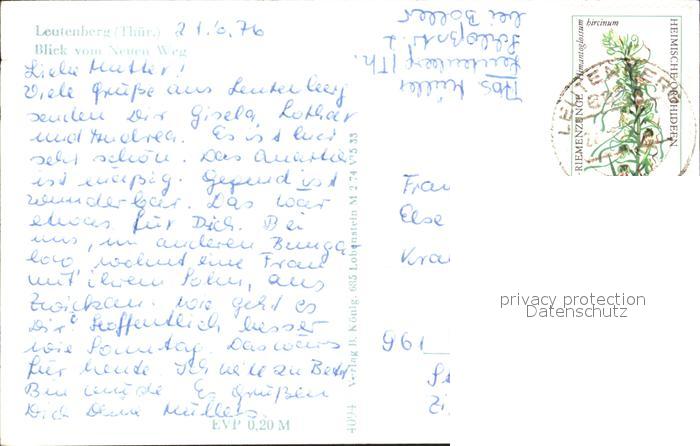 Leutenberg (Thür.) 21.6.76
Blick vom Neuen Weg
Liebe Mutter!
Viele Grüße aus Leutenberg
senden Dir Gisela, Lothar
und Andrea. Es ist hier
sehr schön. Das Quartier
ist mäßig. Gegend ist
wunderbar. Das wär
etwas für Dich. Bei
uns, im anderen Bunga-
low, wohnt eine Frau
mit ihrem Sohn, aus
Zwickau. Wie geht es
Dir? Hoffentlich besser
wie Sonntag. Das wärs
für heute. Ich will zu Bett
Bin müde. Es grüßen
Dich Deine Müllers.
EVP 0,20 M
4094 Verlag B. König, 685 Lobenstein M 2 74 V 5 33
Abs Müller
Leutenberg/Th.
Schloßstr. 2
bei Böller
HEIMISCHE ORCHIDEEN
RIEMENZUNGE Himantoglossum hircinum
LEUTENBERG
Frau
Else
961
privacy protection
Datenschutz